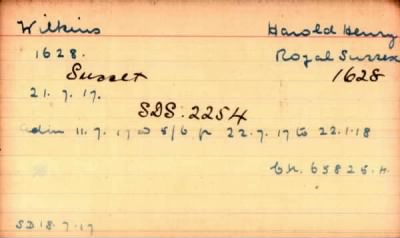 Wilkins Harold Henry
1628. Royal Sussex
Sussex 1628
21.7.17.
SDS. 2254
adm 11.7.17 5/6 pr 22.7.17 to 22.1.18
Ch. 65825.H.
SD 18.7.17